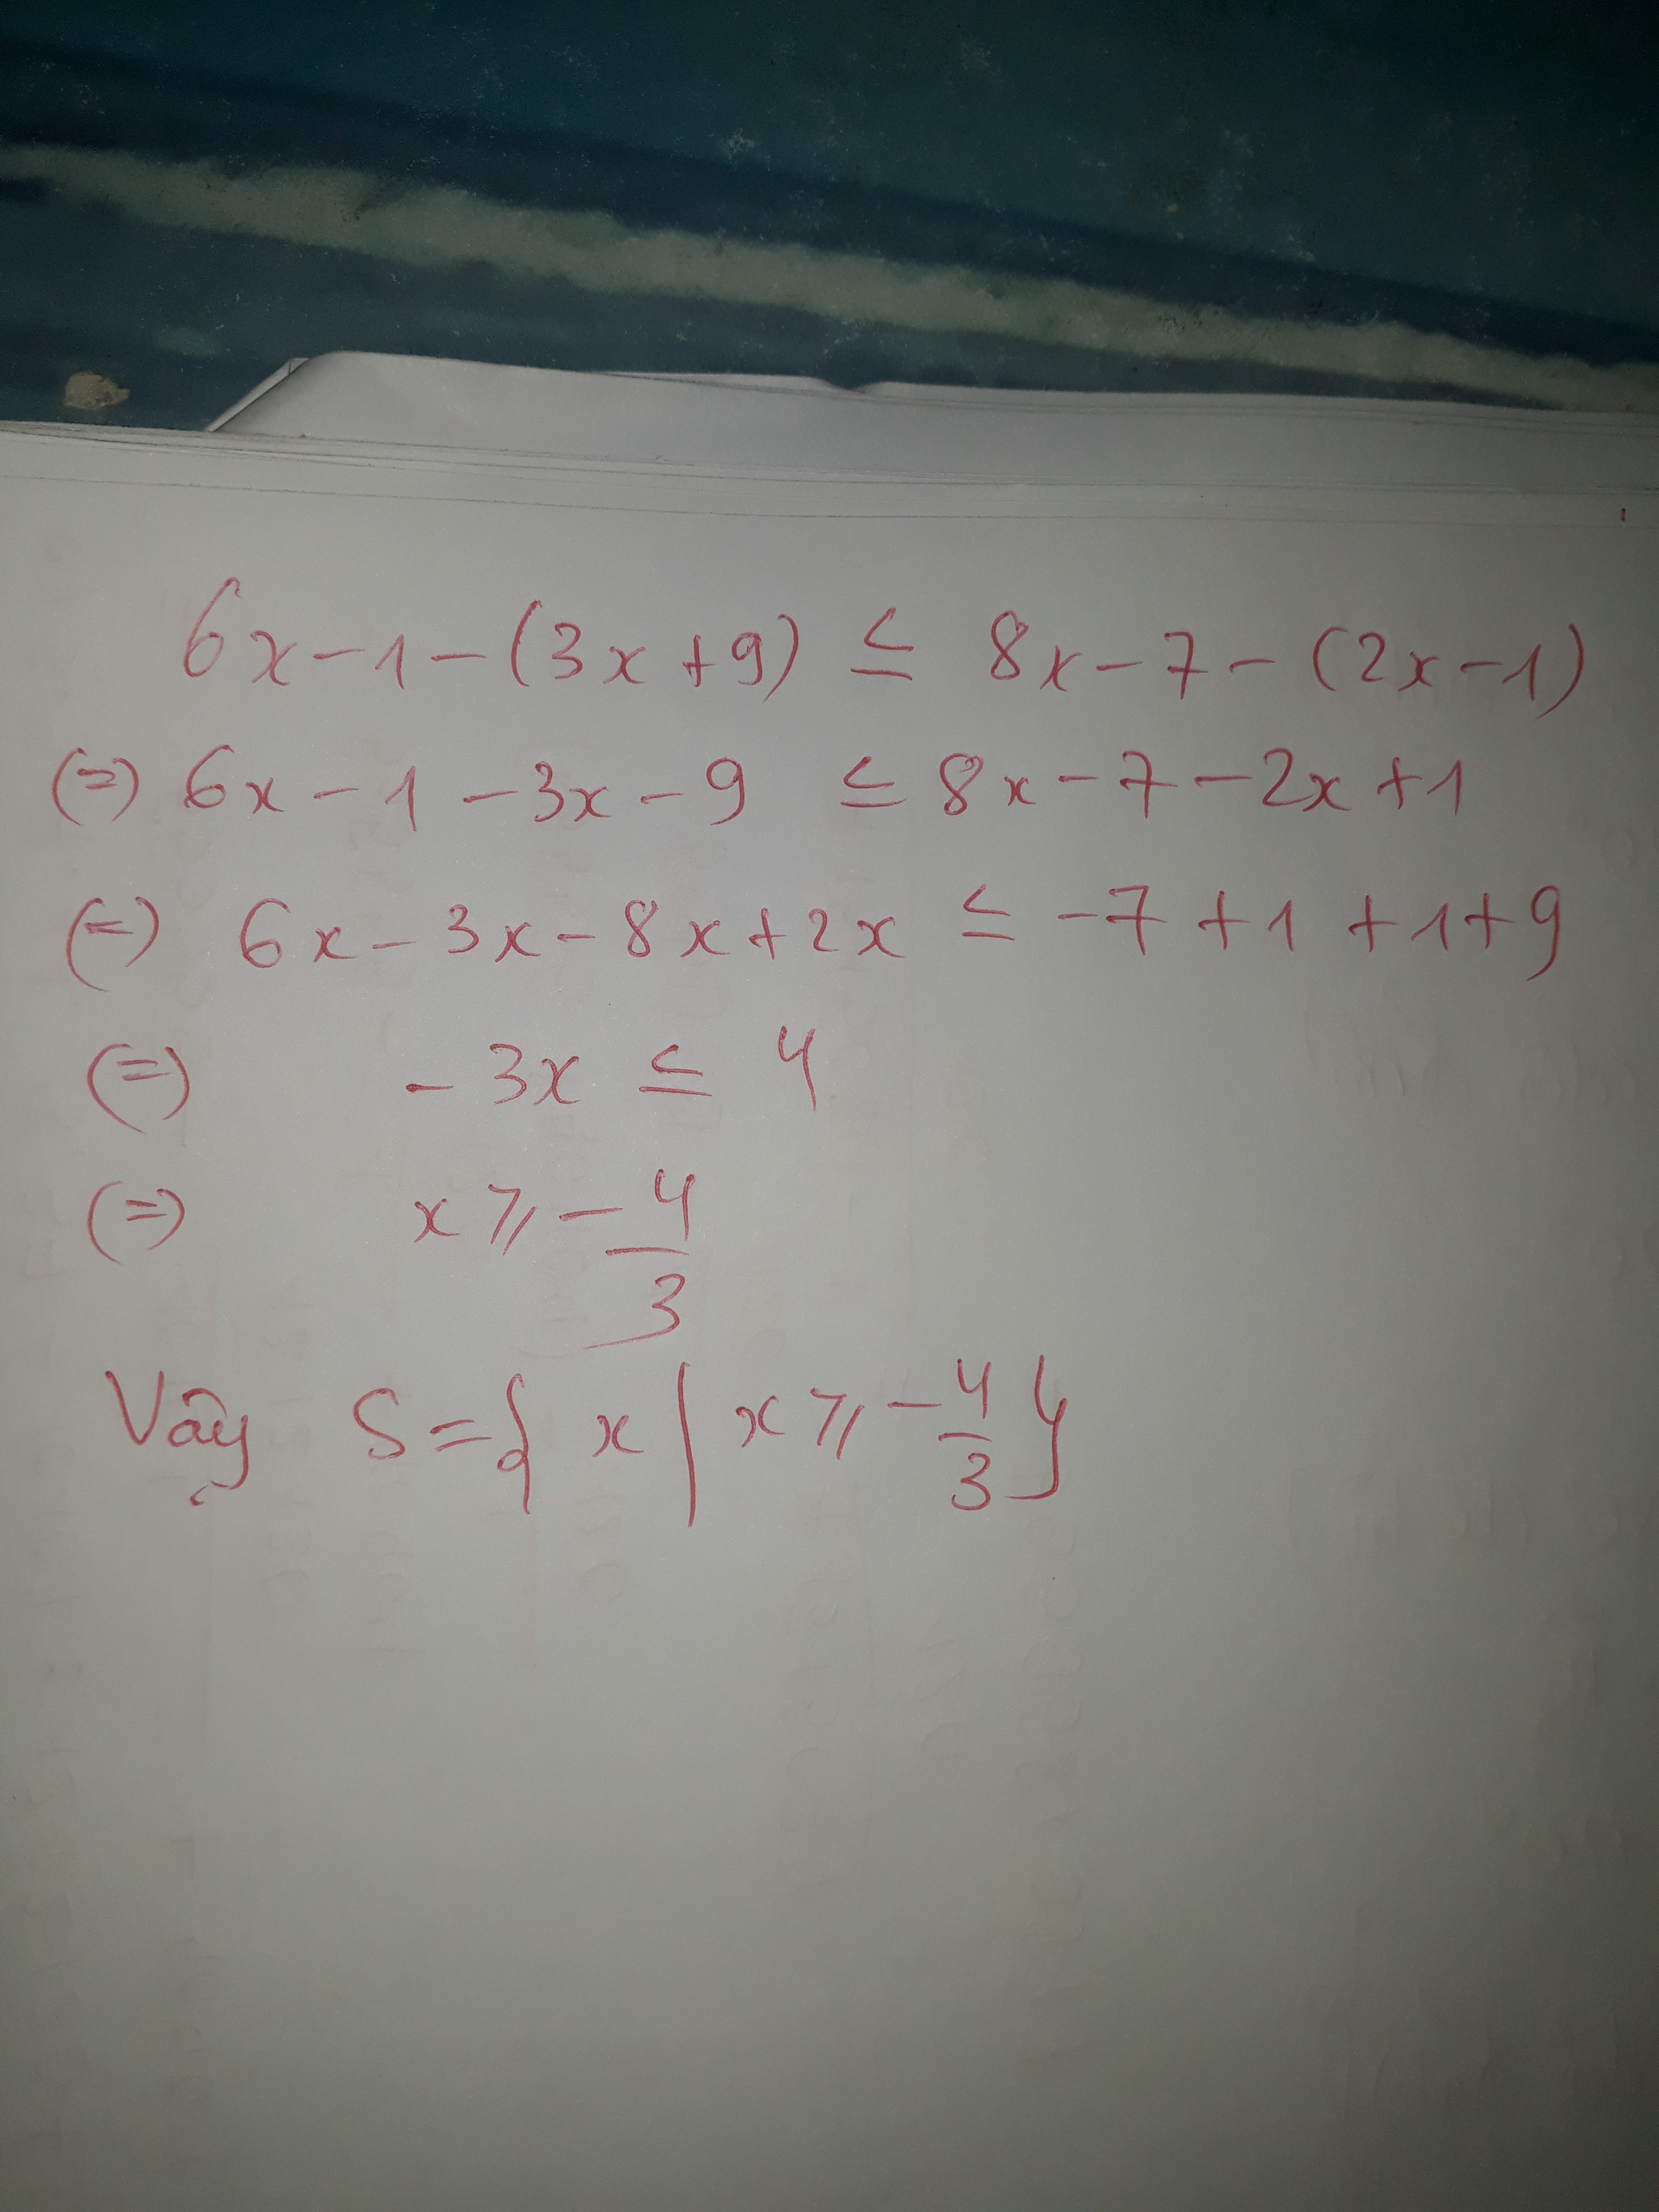 6x - 1 - (3x + 9) ≤ 8x - 7 - (2x - 1)
(=) 6x - 1 - 3x - 9 ≤ 8x - 7 - 2x + 1
(=) 6x - 3x - 8x + 2x ≤ -7 + 1 + 1 + 9
(=) - 3x ≤ 4
(=) x ⩾ - 4/3
Vậy S = { x | x ⩾ - 4/3 }